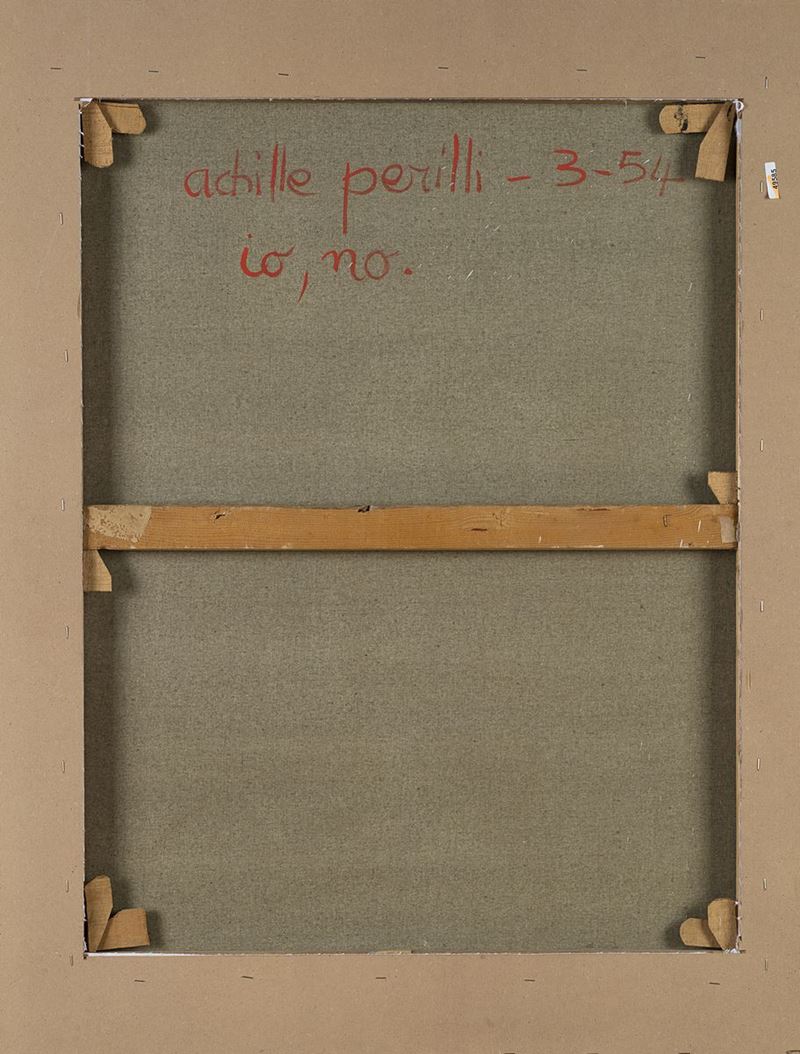 achille perilli - 3-54
io, no.
49585